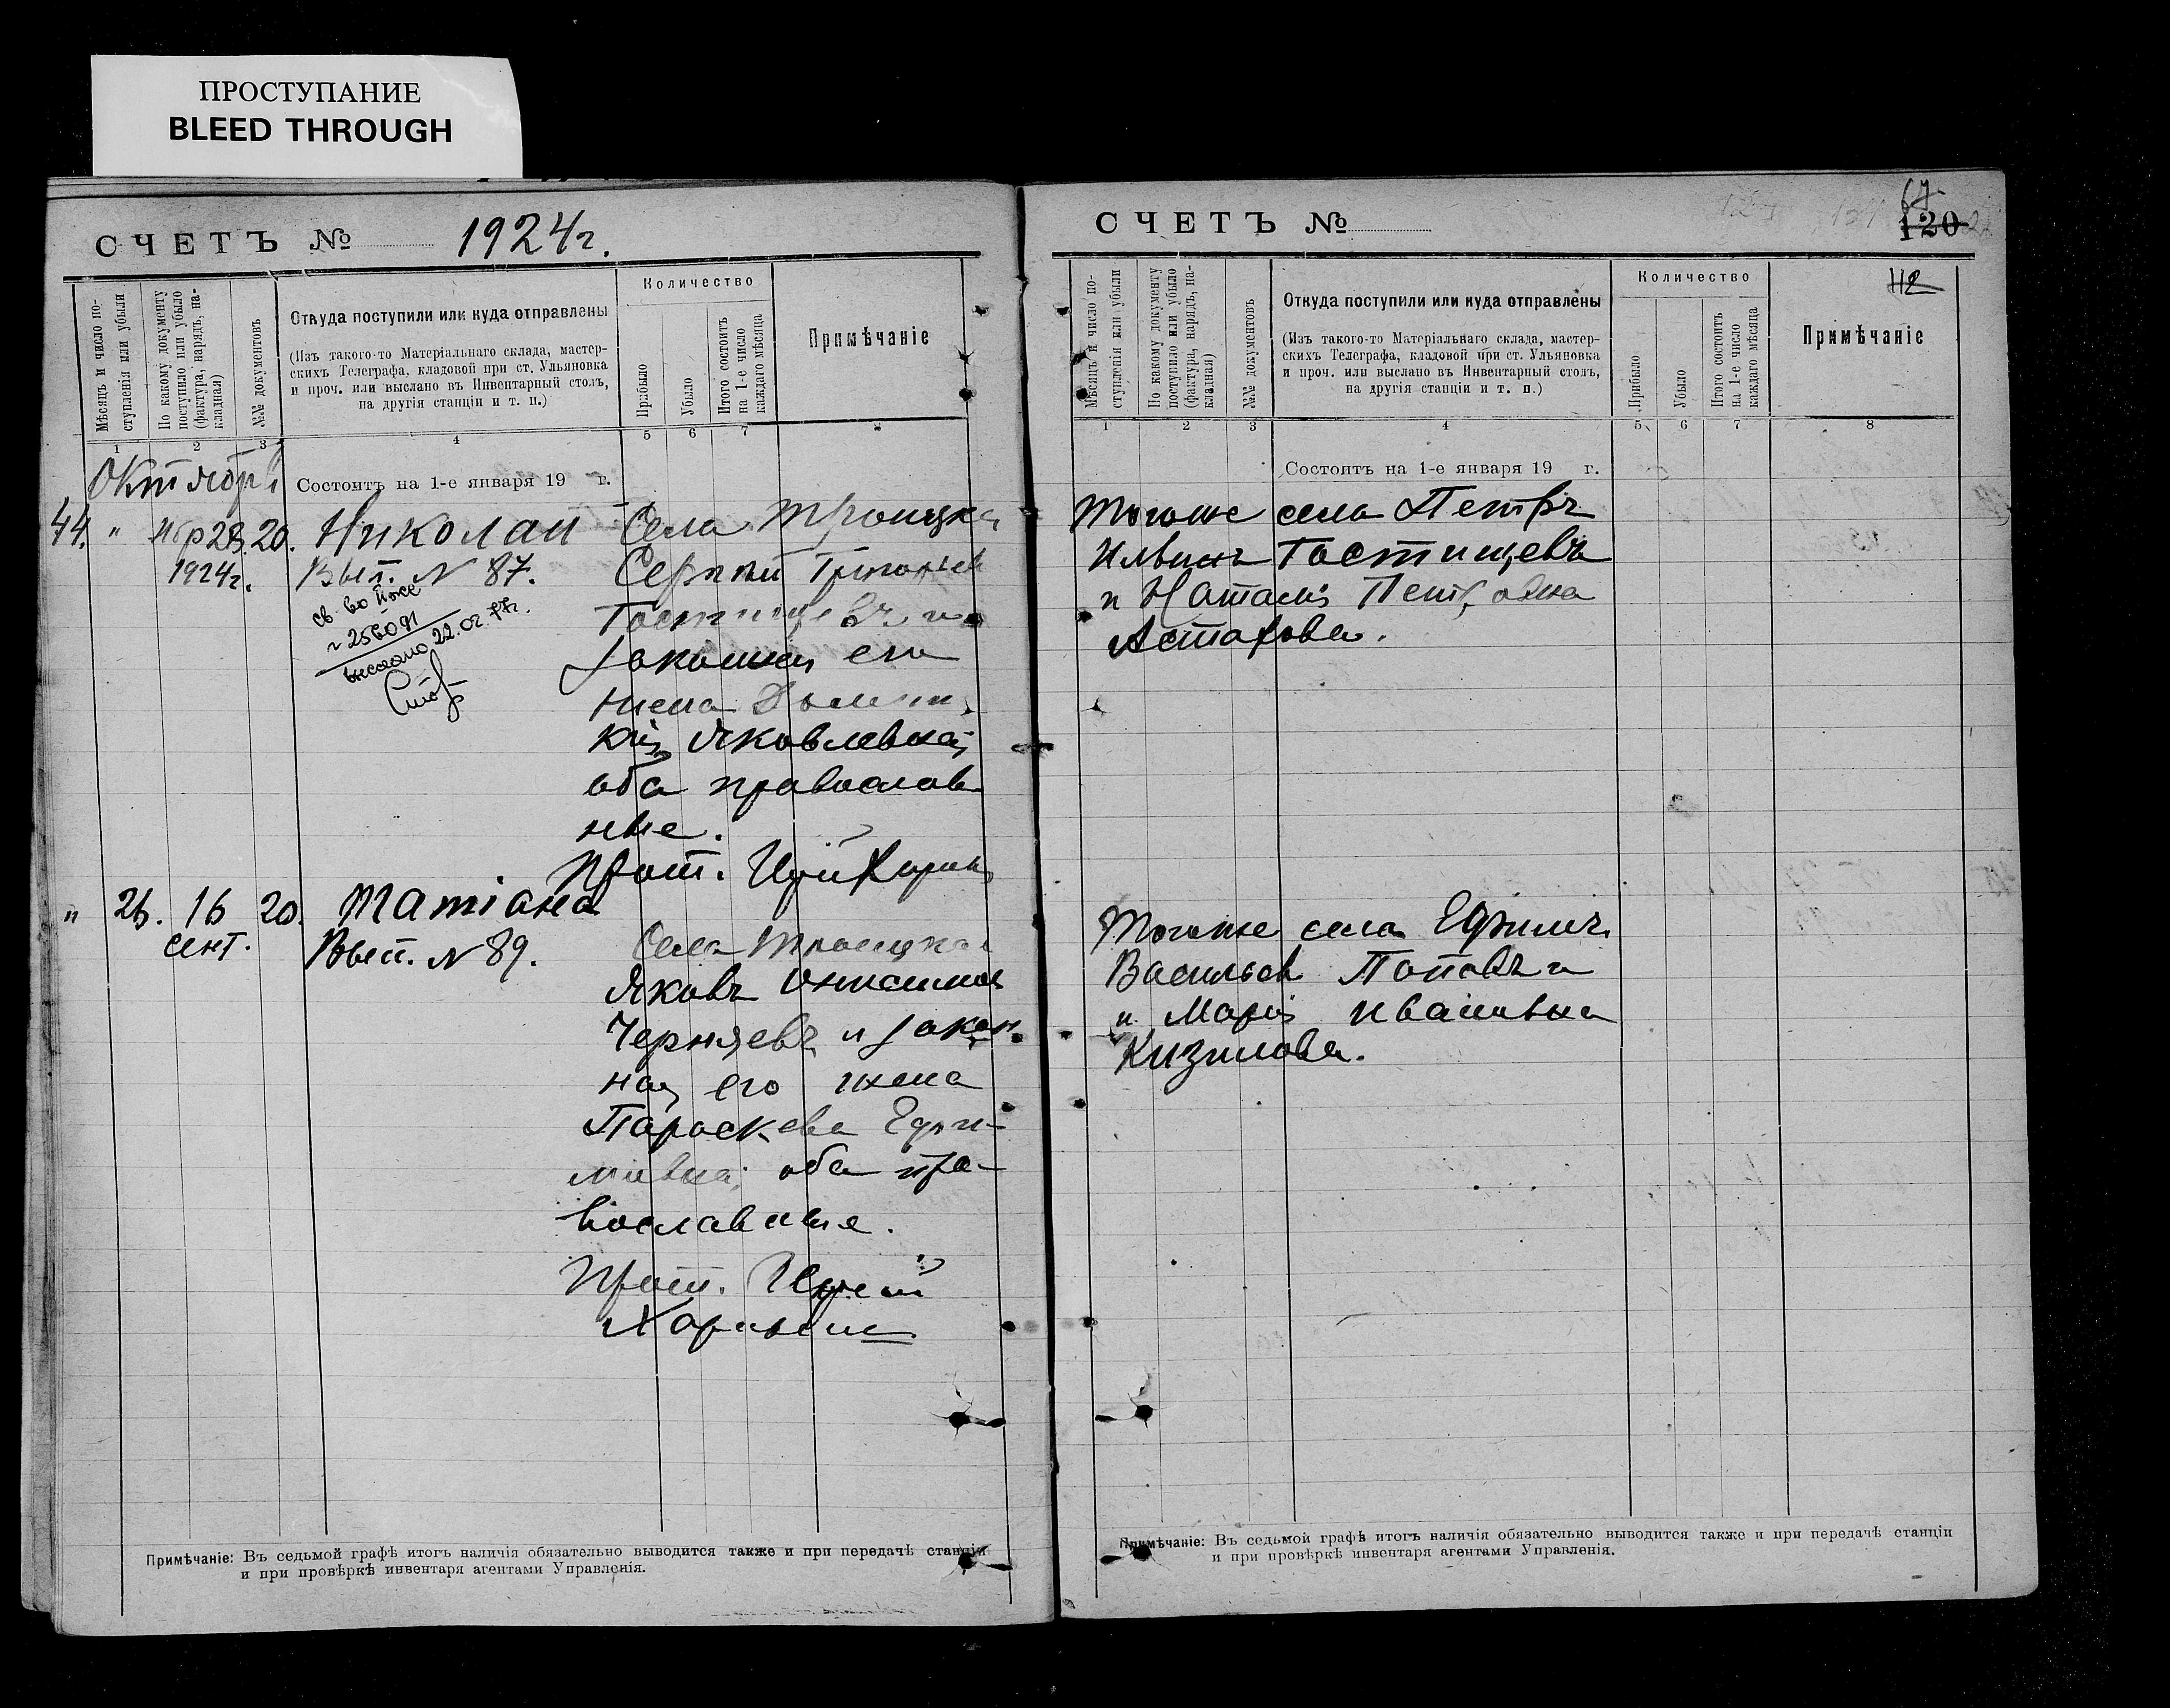 ПРОСТУПАНИЕ
BLEED THROUGH
СЧЕТЪ № 1924г.
Мѣсяцъ и число поступленія или убыли
По какому документу поступило или убыло (фактура, нарядъ, накладная)
№№ документовъ
Откуда поступили или куда отправлены
(Изъ такого-то Матеріальнаго склада, мастер-
скихъ Телеграфа, кладовой при ст. Ульяновка
и проч. или выслано въ Инвентарный столъ,
на другія станціи и т. п.)
Количество
Прибыло
Убыло
Итого состоитъ на 1-е число каждаго мѣсяца
Примѣчаніе
1 2 3 4 5 6 7 8
Октябрь
Состоитъ на 1-е января 19 г.
44. " 28. 20. Николай
1924г. Вып. N 87.
22.02.77г.
Села Троицка
Сергій Григорьев
Гостищевъ и
законная его
жена
Яковлевна;
оба православ
ные.
Прот.
" 26. 16 20. Татіана
сент. Вып. N 89.
Села Троицка
Яковъ
Черняевъ и закон.
ная его жена
Параскева Ефи-
мовна; оба пра-
вославные.
Прот.
СЧЕТЪ №
67
120
112
Мѣсяцъ и число поступленія или убыли
По какому документу поступило или убыло (фактура, нарядъ, накладная)
№№ документовъ
Откуда поступили или куда отправлены
(Изъ такого-то Матеріальнаго склада, мастер-
скихъ Телеграфа, кладовой при ст. Ульяновка
и проч. или выслано въ Инвентарный столъ,
на другія станціи и т. п.)
Количество
Прибыло
Убыло
Итого состоитъ на 1-е число каждаго мѣсяца
Примѣчаніе
1 2 3 4 5 6 7 8
Состоитъ на 1-е января 19 г.
Тогоже села Петръ
Ильинъ Гостищевъ
и Наталія Петровна
Астахова.
Тогоже села Ефимъ
Васильев Поповъ и
и Марія Ивановна
Кизилова.
Примѣчаніе: Въ седьмой графѣ итогъ наличія обязательно выводится также и при передачѣ станціи
и при провѣркѣ инвентаря агентами Управленія.
Примѣчаніе: Въ седьмой графѣ итогъ наличія обязательно выводится также и при передачѣ станціи
и при провѣркѣ инвентаря агентами Управленія.